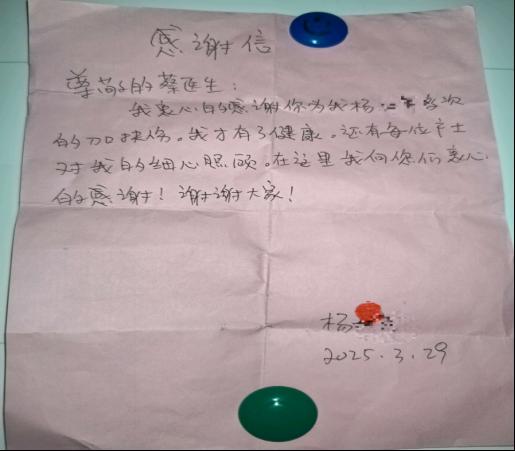 感谢信
尊敬的蔡医生：
我衷心的感谢你为我杨 多次
的加 。我才有了健康。还有每位护士
对我的细心照顾。在这里我向您们衷心
的感谢！谢谢大家！
杨
2025.3.29